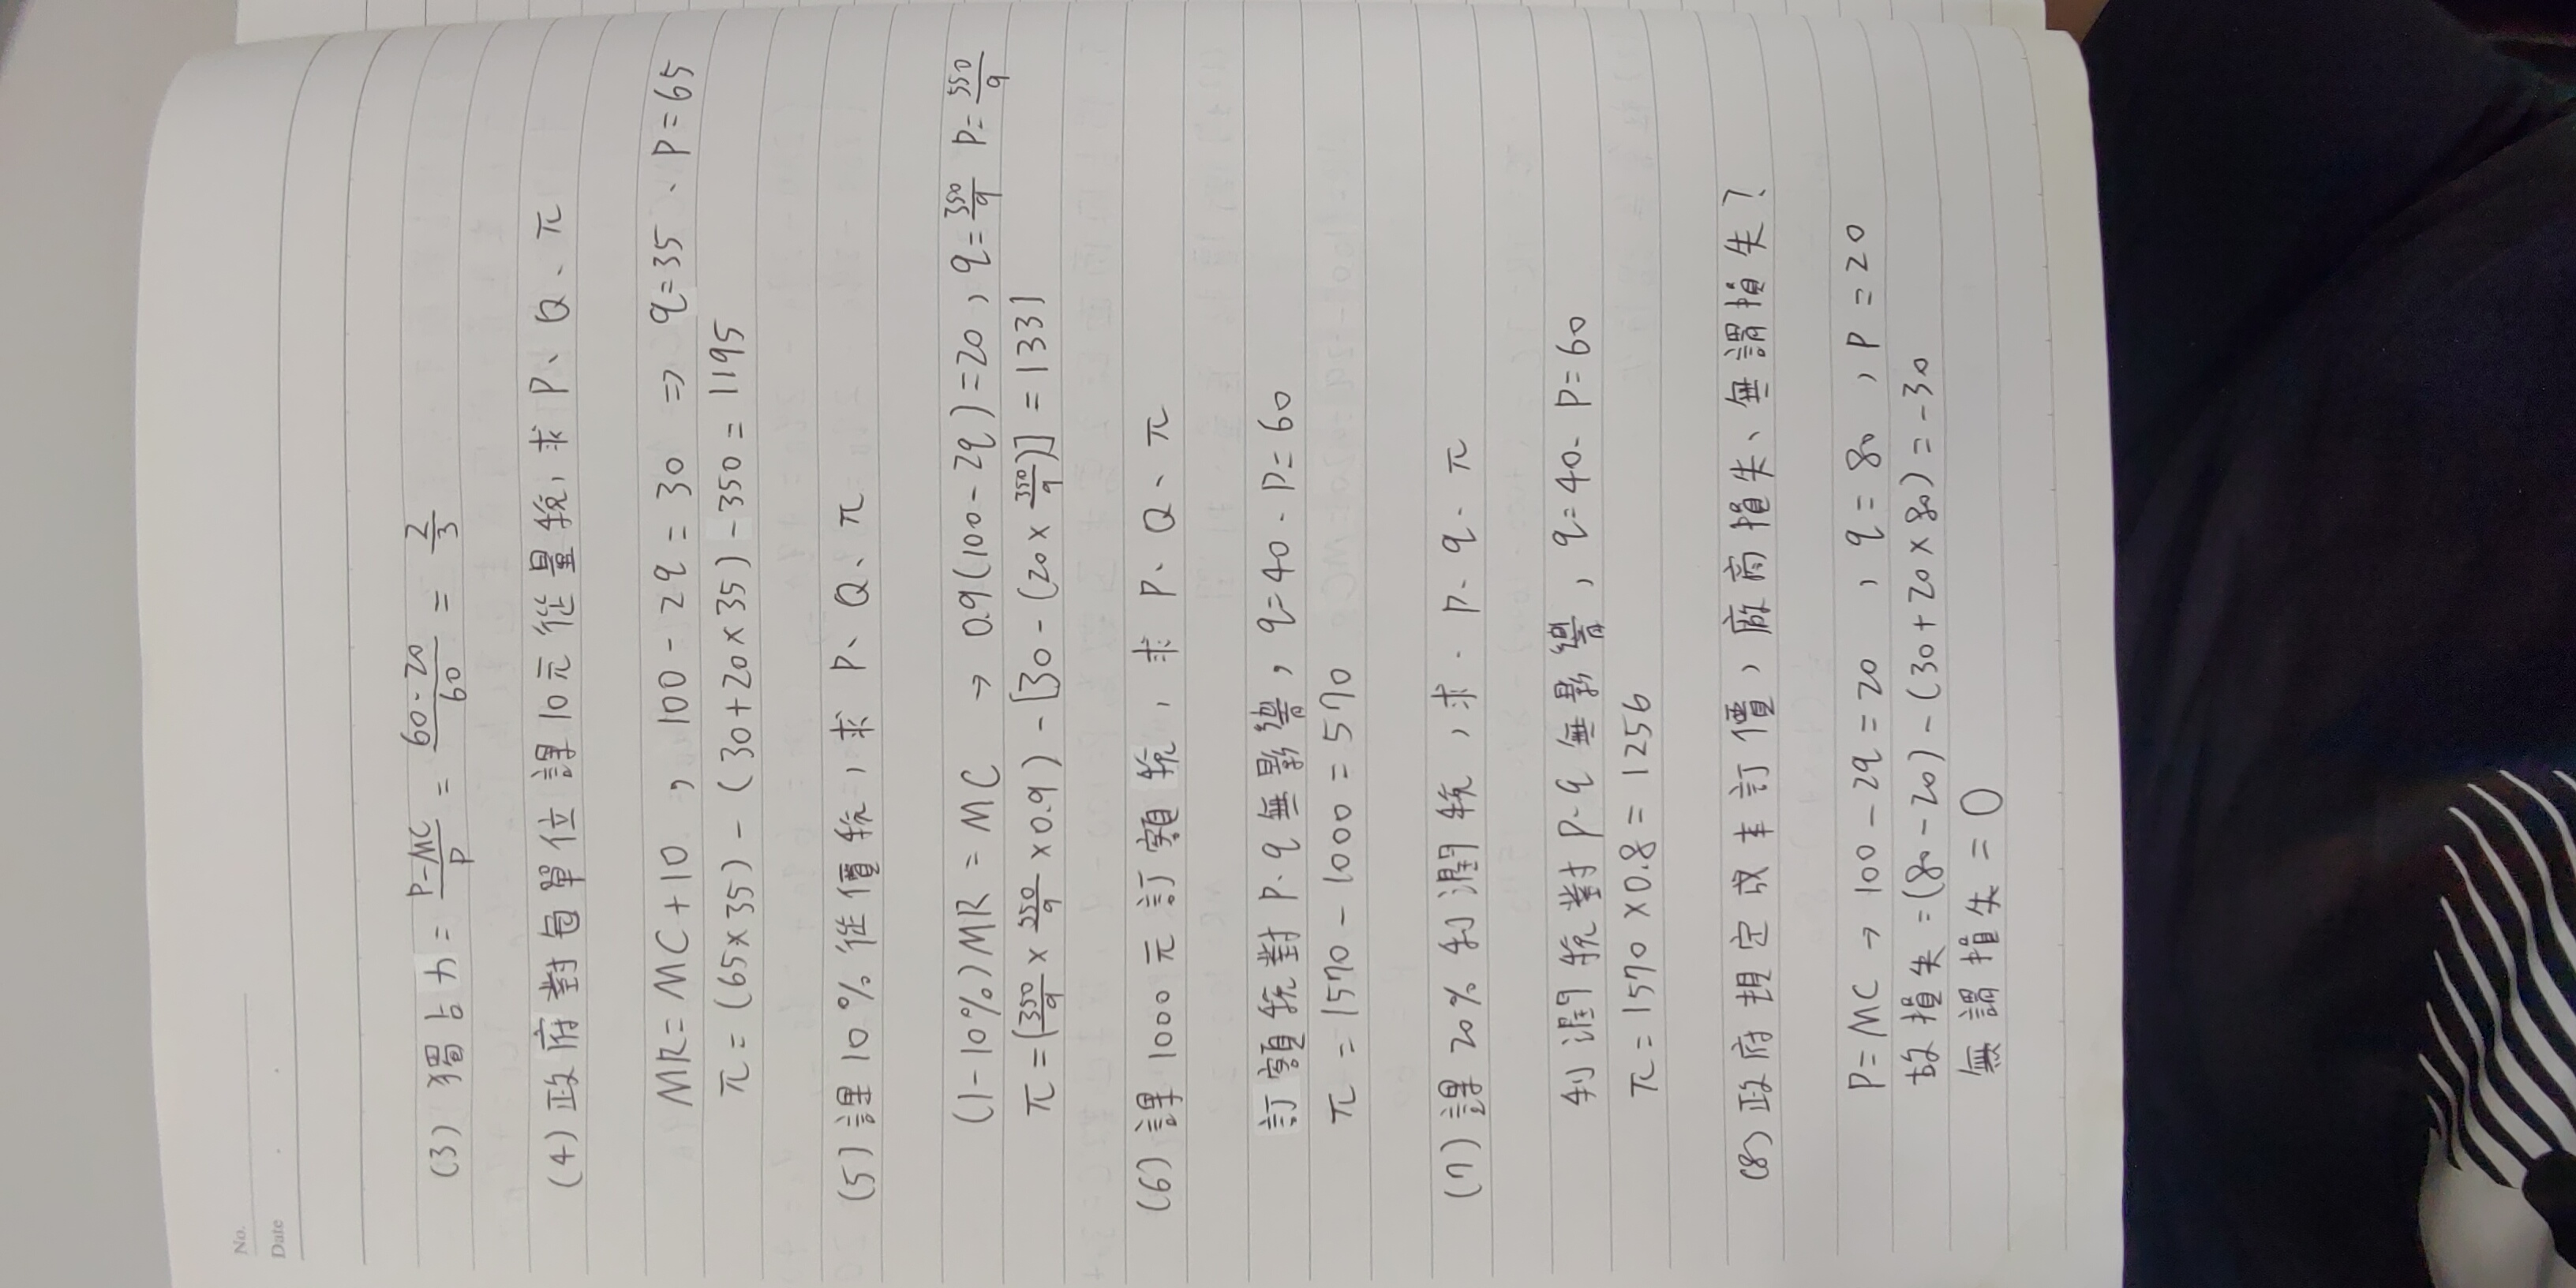 No.
Date
(3) 獨占力 = (P-MC)/P = (60-20)/60 = 2/3
(4) 政府對每單位課10元從量稅, 求 P、Q、π
MR = MC + 10 , 100 - 2q = 30 ⇒ q=35 、 P=65
π = (65×35) - (30+20×35) - 350 = 1195
(5) 課10%從價稅, 求 P、Q、π
(1-10%)MR = MC → 0.9(100-2q)=20, q=350/9 P=550/9
π = (350/9 × 550/9 × 0.9) - [30 - (20 × 350/9)] = 1331
(6) 課 1000 元 訂額稅, 求 P、Q、π
訂額稅對 P.q 無影響, q=40 . P=60
π = 1570 - 1000 = 570
(7) 課20%利潤稅, 求. P. q. π
利潤稅對 P.q 無影響, q=40. P=60
π = 1570 × 0.8 = 1256
(8) 政府規定成本訂價, 廠商損失、無謂損失?
P=MC → 100 - 2q = 20 , q = 80 , P = 20
故損失 = (80-20) - (30+20×80) = -30
無謂損失 = 0